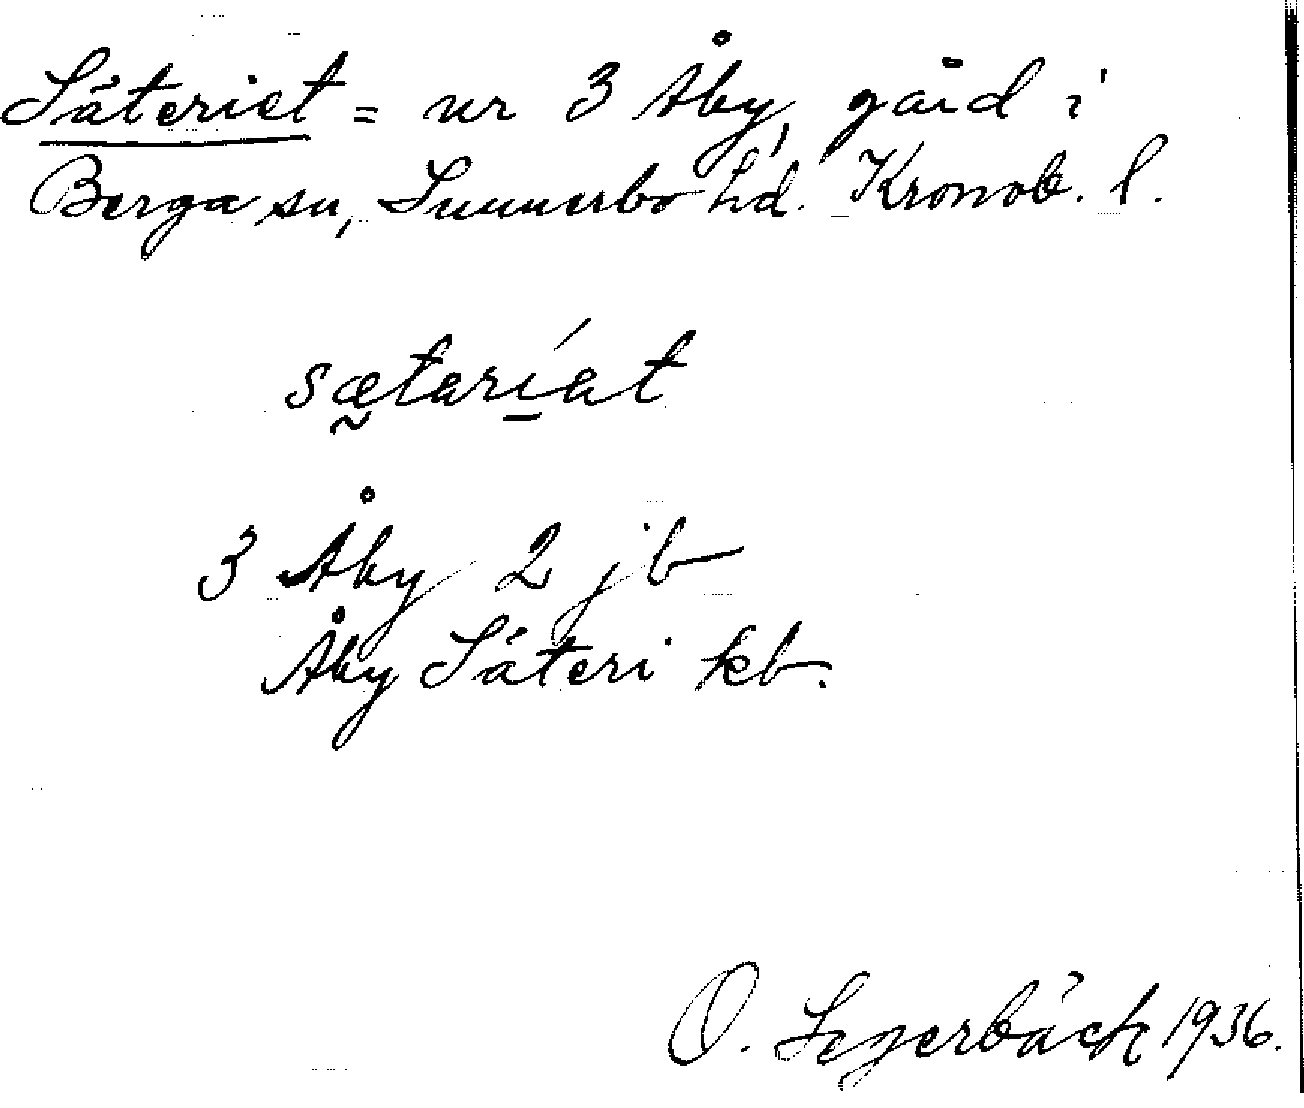 Säteriet = nr 3 Åby, gård i
Berga sn, Sunnerbo hd. Kronob. l.
sætaríat
3 Åby 2 jb
Åby Säteri kb.
O. Segerbäck 1936.